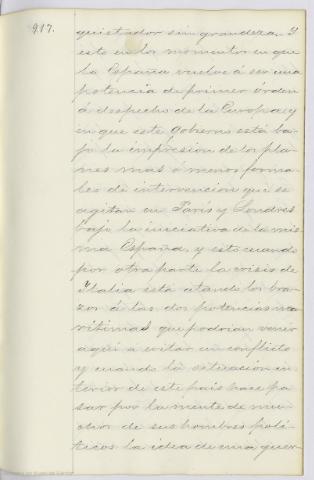 917.
quistador sin grandeza. Y
esto en los momentos en que
la España vuelve á ser una
potencia de primer órden
á despecho de la Europa, y
en que este Gobierno está ba-
jo la impresion de los pla-
nes mas ó menos forma-
les de intervencion que se
agitan en Paris y Londres
bajo la iniciativa de la mis-
ma España, y esto cuando
por otra parte la crisis de
Italia está atando los bra-
zos á las dos potencias ma
ritimas que podrian venir
aquí á evitar un conflicto
y cuando la situacion in-
terior de este pais hace pa
sar por la mente de mu-
chos de sus hombres polí-
ticos la idea de una guer-